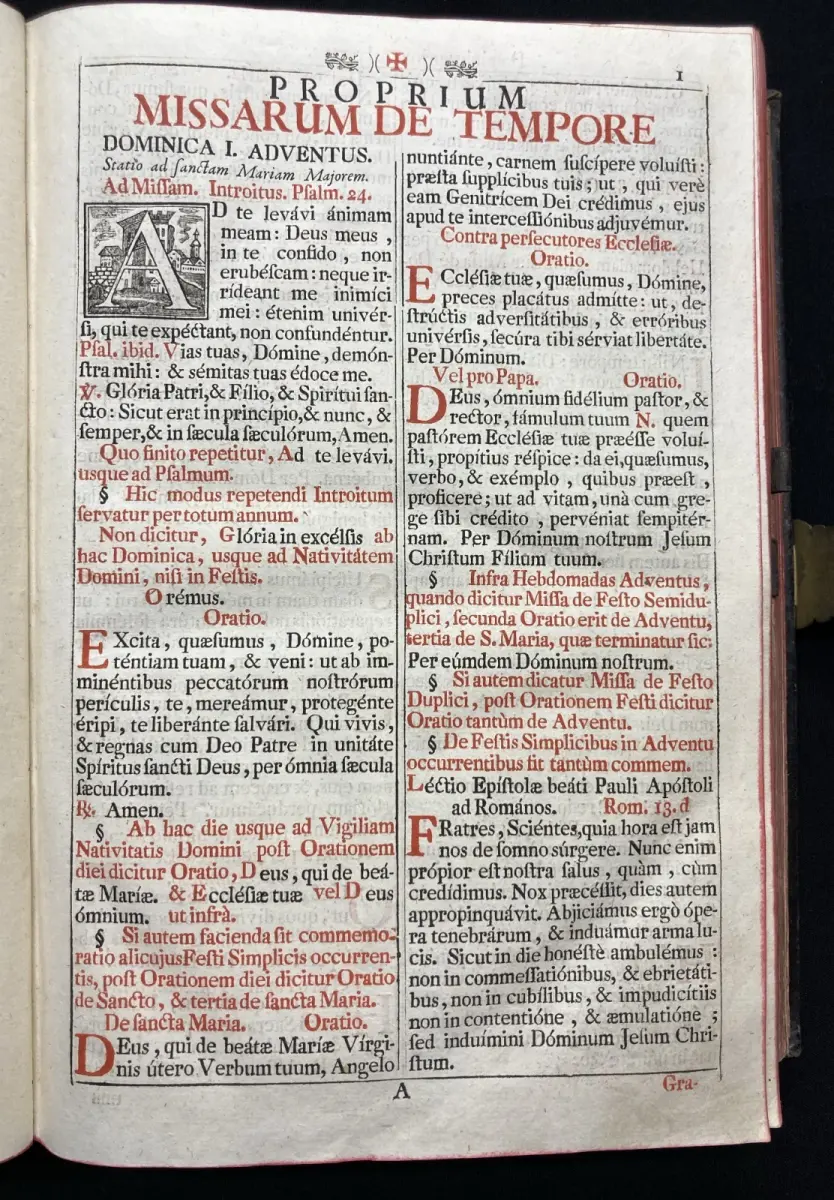 1
PROPRIUM
MISSARUM DE TEMPORE
DOMINICA I. ADVENTUS.
Statio ad ſanctam Mariam Majorem.
Ad Miſſam. Introitus. Pſalm. 24.
AD te levávi ánimam
meam: Deus meus ,
in te confido , non
erubéſcam: neque ir-
rídeant me inimíci
mei: étenim univér-
ſi, qui te expéctant, non confundéntur.
Pſal. ibid. Vias tuas, Dómine, demón-
ſtra mihi: & ſémitas tuas édoce me.
℣. Glória Patri, & Fílio, & Spirítui ſan-
cto: Sicut erat in princípio, & nunc, &
ſemper, & in ſæcula ſæculórum, Amen.
Quo finito repetitur, Ad te levávi.
usque ad Pſalmum.
§ Hic modus repetendi Introitum
ſervatur per totum annum.
Non dicitur, Glória in excélſis ab
hac Dominica, usque ad Nativitátem
Domini, niſi in Feſtis.
Orémus.
Oratio.
EXcita, quæſumus, Dómine, po-
téntiam tuam, & veni: ut ab im-
minéntibus peccatórum noſtrórum
perículis, te, mereámur, protegénte
éripi, te liberánte ſalvári. Qui vivis,
& regnas cum Deo Patre in unitáte
Spíritus ſancti Deus, per ómnia ſæcula
ſæculórum.
℟. Amen.
§ Ab hac die usque ad Vigiliam
Nativitatis Domini poſt Orationem
diei dicitur Oratio, Deus, qui de beá-
tæ Maríæ. & Eccléſiæ tuæ vel Deus
ómnium. ut infrà.
§ Si autem facienda ſit commemo-
ratio alicujus Feſti Simplicis occurren-
tis, poſt Orationem diei dicitur Oratio
de Sancto, & tertia de ſancta Maria.
De ſancta Maria. Oratio.
DEus, qui de beátæ Maríæ Vírgi-
nis útero Verbum tuum, Angelo
nuntiánte, carnem ſuſcípere voluíſti:
præſta ſupplícibus tuis; ut , qui verè
eam Genitrícem Dei crédimus , ejus
apud te interceſſiónibus adjuvémur.
Contra perſecutores Eccleſiæ.
Oratio.
ECcléſiæ tuæ, quæſumus, Dómine,
preces placátus admítte: ut, de-
ſtrúctis adverſitátibus , & erróribus
univérſis, ſecúra tibi sérviat libertáte.
Per Dóminum.
Vel pro Papa. Oratio.
DEus, ómnium fidélium paſtor, &
rector, fámulum tuum N. quem
paſtórem Eccléſiæ tuæ præéſſe voluí-
ſti, propítius réſpice: da ei, quæſumus,
verbo, & exémplo , quibus præeſt ,
proficere; ut ad vitam, unà cum gre-
ge ſibi crédito , pervéniat ſempitér-
nam. Per Dóminum noſtrum Jeſum
Chriſtum Fílium tuum.
§ Infra Hebdomadas Adventus,
quando dicitur Miſſa de Feſto Semidu-
plici, ſecunda Oratio erit de Adventu,
tertia de S. Maria, quæ terminatur ſic:
Per eúmdem Dóminum noſtrum.
§ Si autem dicatur Miſſa de Feſto
Duplici, poſt Orationem Feſti dicitur
Oratio tantùm de Adventu.
§ De Feſtis Simplicibus in Adventu
occurrentibus fit tantùm commem.
Léctio Epíſtolæ beáti Pauli Apóſtoli
ad Romános. Rom. 13. d
FRatres, Sciéntes, quia hora eſt jam
nos de ſomno súrgere. Nunc enim
própior eſt noſtra ſalus , quàm , cùm
credídimus. Nox præcéſſit, dies autem
appropinquávit. Abjiciámus ergò ópe-
ra tenebrárum, & induámur arma lu-
cis. Sicut in die honéſtè ambulémus :
non in commeſſatiónibus, & ebrietáti-
bus, non in cubílibus, & impudicítiis
non in contentióne , & æmulatióne ;
ſed induímini Dóminum Jeſum Chri-
ſtum.
A
Gra-